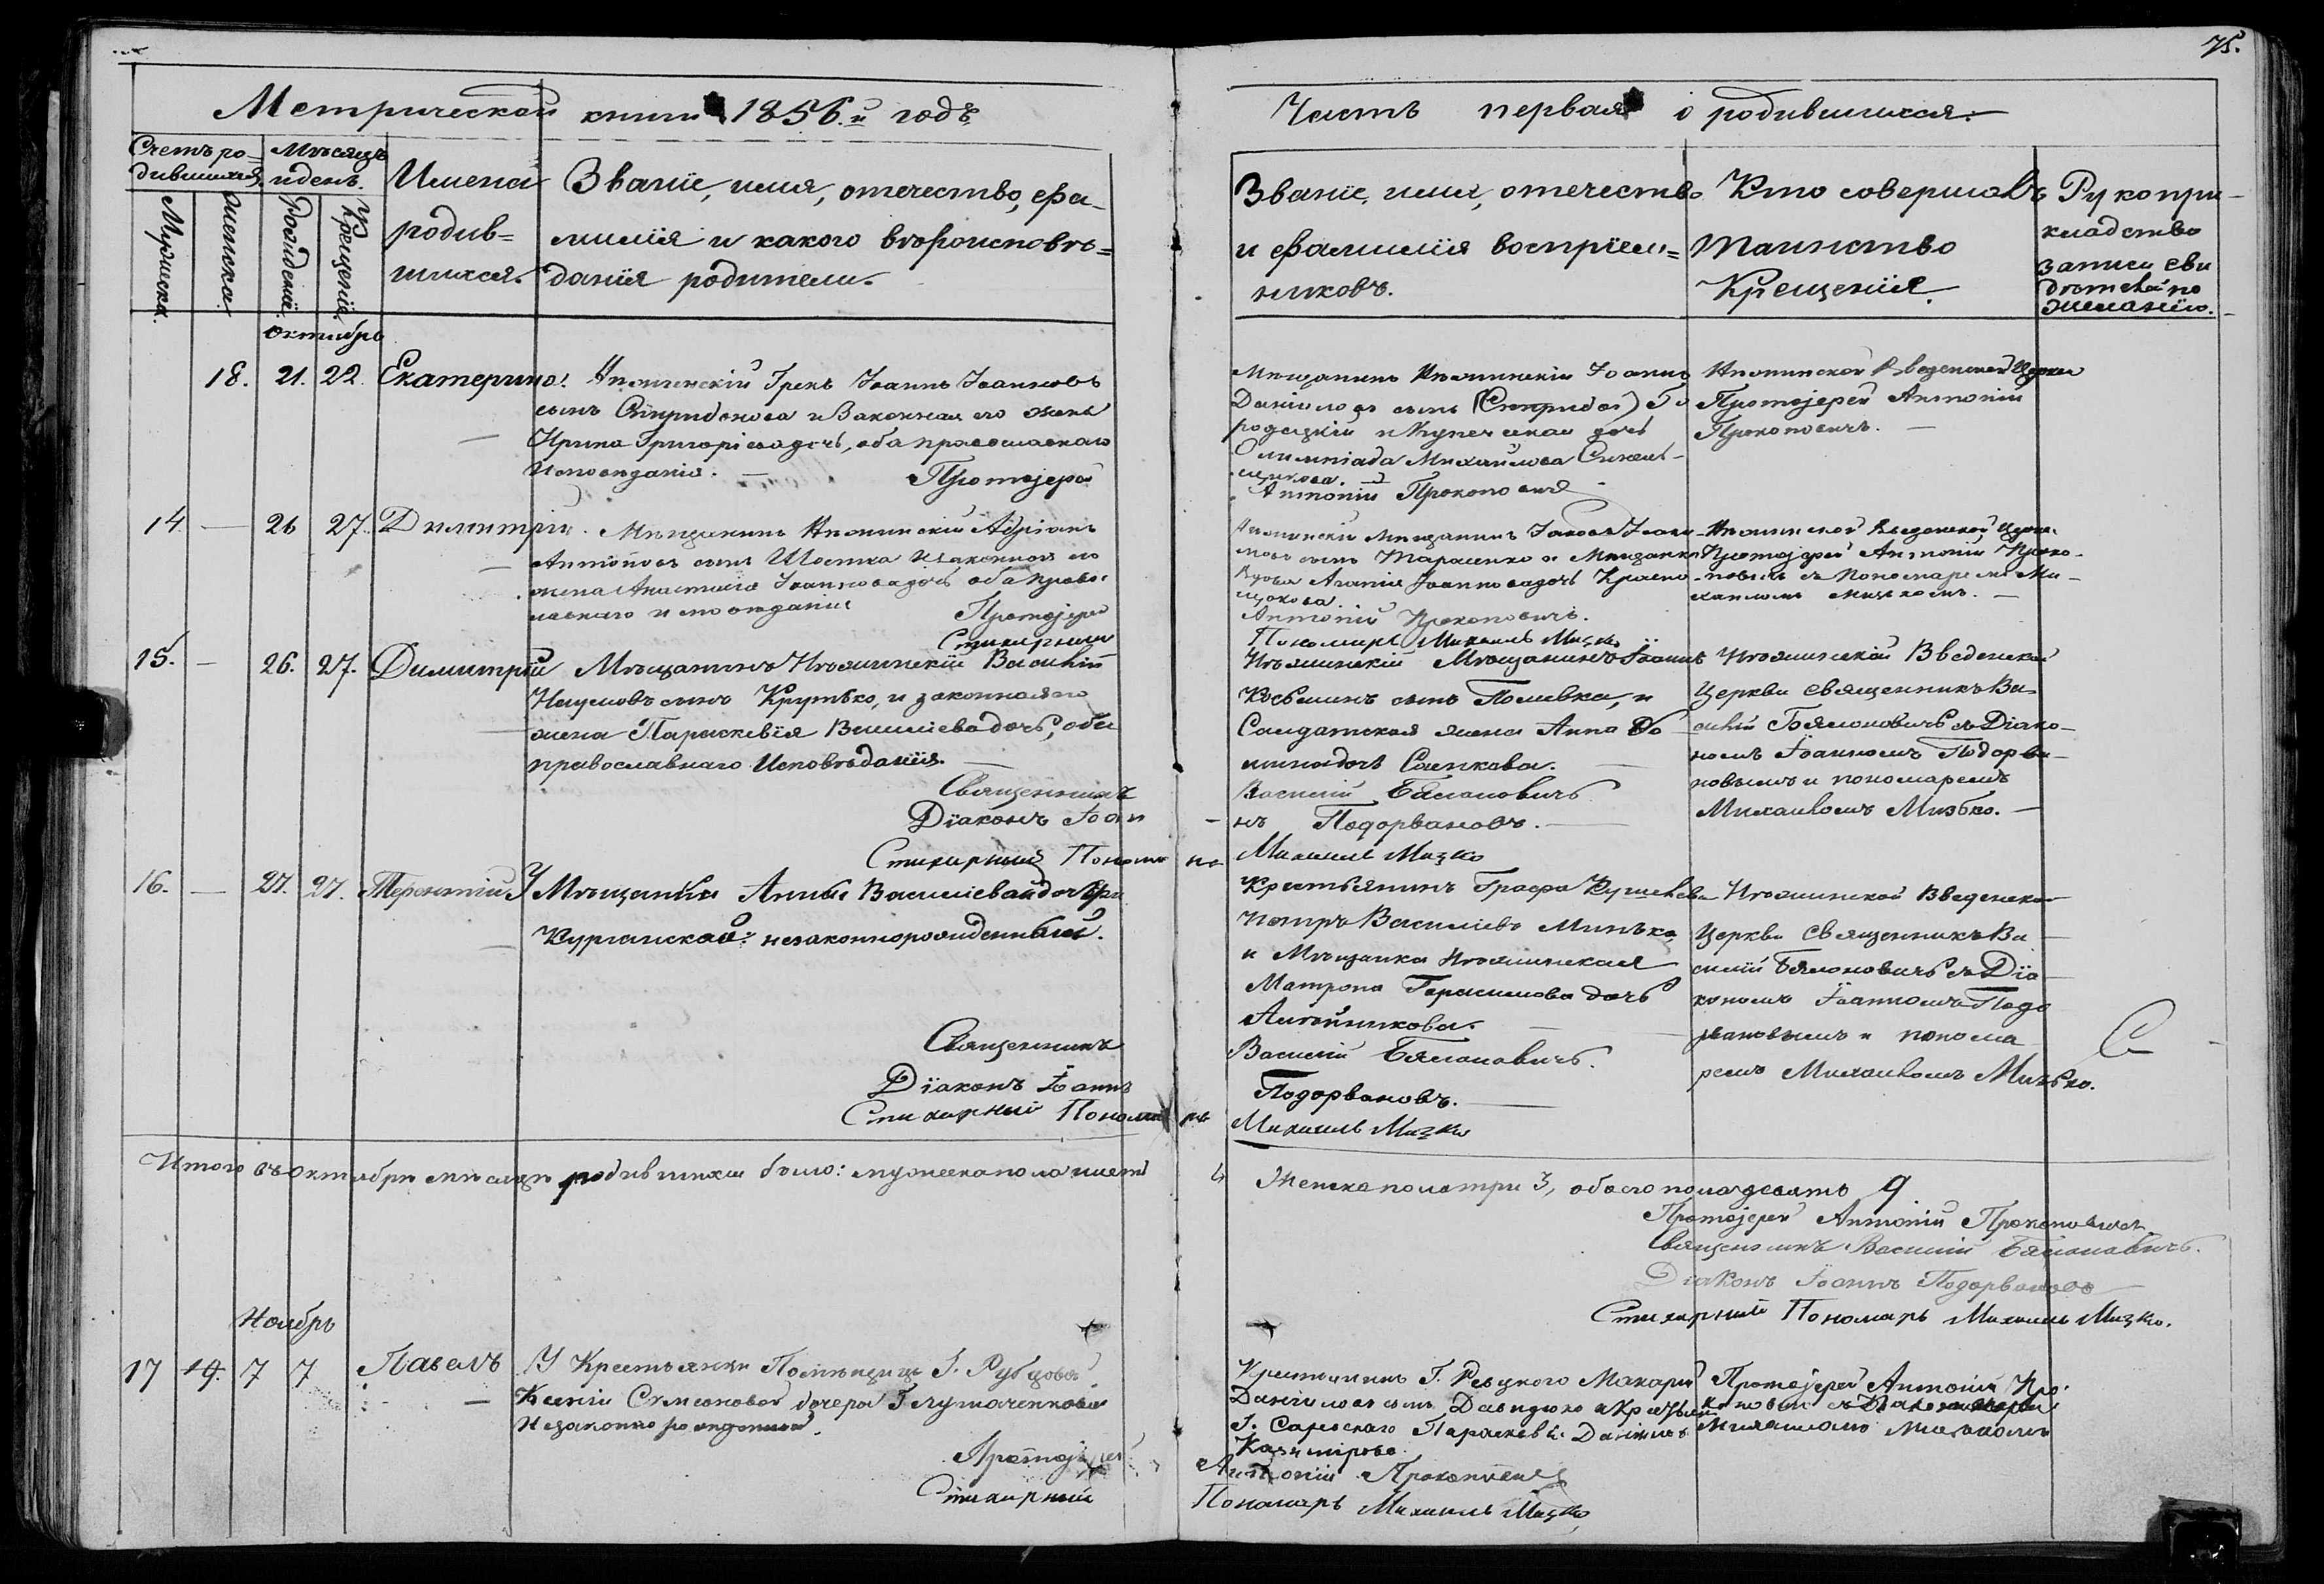 75.
Метрической книги 1856.й годъ
Часть первая о родившихся.
Счетъ ро-
дившихся.
Мѣсяцъ
и день.
Мужеска.
женска.
Рожденія.
Крещенія.
Имена
родив=
шихся.
Званіе, имя, отечество, фа-
милія и какого вѣроисповѣ=
данія родители.
Званіе, имя, отечество
и фамилія воспріем=
никовъ.
Кто совершалъ
таинство
Крещенія.
Рукопри-
кладство
записи сви
дѣтелей по
желанію.
Октябрь
18. 21. 22. Екатерина.
Нѣжинскій Грекъ Іоаннъ Іоанновъ
сынъ Спиридонова и Законная его жена
Ирина Григоріева дочь, оба православнаго
Исповѣданія. Протоіерей
Мѣщанинъ Нѣжинскій Іоаннъ
Даніиловъ сынъ (Спиридов) Го
родецкій и Купеческая дочь
Олимпіада Михайлова Синель-
щикова.
Антоній Прокоповичъ
Нѣжинской Введенской Церкви
Протоіерей Антоній
Прокоповичъ.
14. — 26 27. Димитрій.
Мѣщанинъ Нѣжинскій Адріанъ
Антоновъ сынъ Шостка и законная его
жена Анастасія Іоаннова дочь оба право-
славнаго исповѣданія Протоіерей
Стихирный
Нѣжинскій Мѣщанинъ Іаковъ Іоан-
новъ сынъ Тарасенко и Мѣщанка
Вдова Агафія Іоаннова дочь Красно-
щокова.
Антоній Прокоповичъ.
Пономарь Михаилъ Мизко
Нѣжинской Введенской Церкви
Протоіерей Антоній Проко-
повичъ съ Пономаремъ Ми-
хаиломъ Мизькомъ.
15. — 26. 27. Димитрій
Мѣщанинъ Нѣжинскій Василій
Наумовъ сынъ Крутько, и законная его
жена Параскевія Василіева дочь, оба
православнаго Исповѣданія.
Священникъ
Діаконъ Іоан
Стихирный Пономарь
Нѣжинскій Мѣщанинъ Іоаннъ
Косьминъ сынъ Поливка, и
Солдатская жена Анна Фо
мина дочь Сапкова.
Василій Бялоновичъ
нъ Подорвановъ.
Михаилъ Мизко
Нѣжинской Введенской
Церкви Священникъ Ва
силій Бялоновичъ съ Діако-
номъ Іоанномъ Подорва-
новымъ и пономаремъ
Михаиломъ Мизько.
16. — 27. 27. Терентій
У Мѣщанки Анны Василіевой дочери
Курганской: незаконнорожденный.
Священникъ
Діаконъ Іоаннъ
Стихирный Пономарь
Крестьянинъ Графа Кушелева
Петръ Василіевъ Минька
и Мѣщанка Нѣжинская
Матрона Герасимова дочь
Алтойникова.
Василій Бялоновичъ.
Подорвановъ.
Михаилъ Мизко
Нѣжинской Введенской
Церкви Священникъ Ва
силій Бялоновичъ съ Діа
кономъ Іоанномъ Подор
вановымъ и понома
ремъ Михаиломъ Мизько.
Итого въ октябрѣ мѣсяцѣ родившихся было: мужеска пола шесть
Женска пола три 3, обоего пола девять 9
Протоіерей Антоній Прокоповичъ
Священникъ Василій Бялоновичъ.
Діаконъ Іоаннъ Подорвановъ
Стихирный Пономарь Михаилъ Мизко.
Ноябрь
17 19. 7 7 Павелъ
У Крестьянки Помѣщицы Г. Рубцовой
Ксеніи Симеоновой дочери Глушаченковой
Незаконно рожденный.
Протоіерей
Стихирный
Крестьянинъ Г. Ревуцкого Макарій
Даніиловъ сынъ Давидюкъ и Крестьян
Г. Саревскаго Параскева Даніилова
Казимірова.
Антоній Прокоповичъ
Пономарь Михаилъ Мизко
Протоіерей Антоній Про-
коповичъ съ Пономаремъ
Михаиломъ Мизькомъ